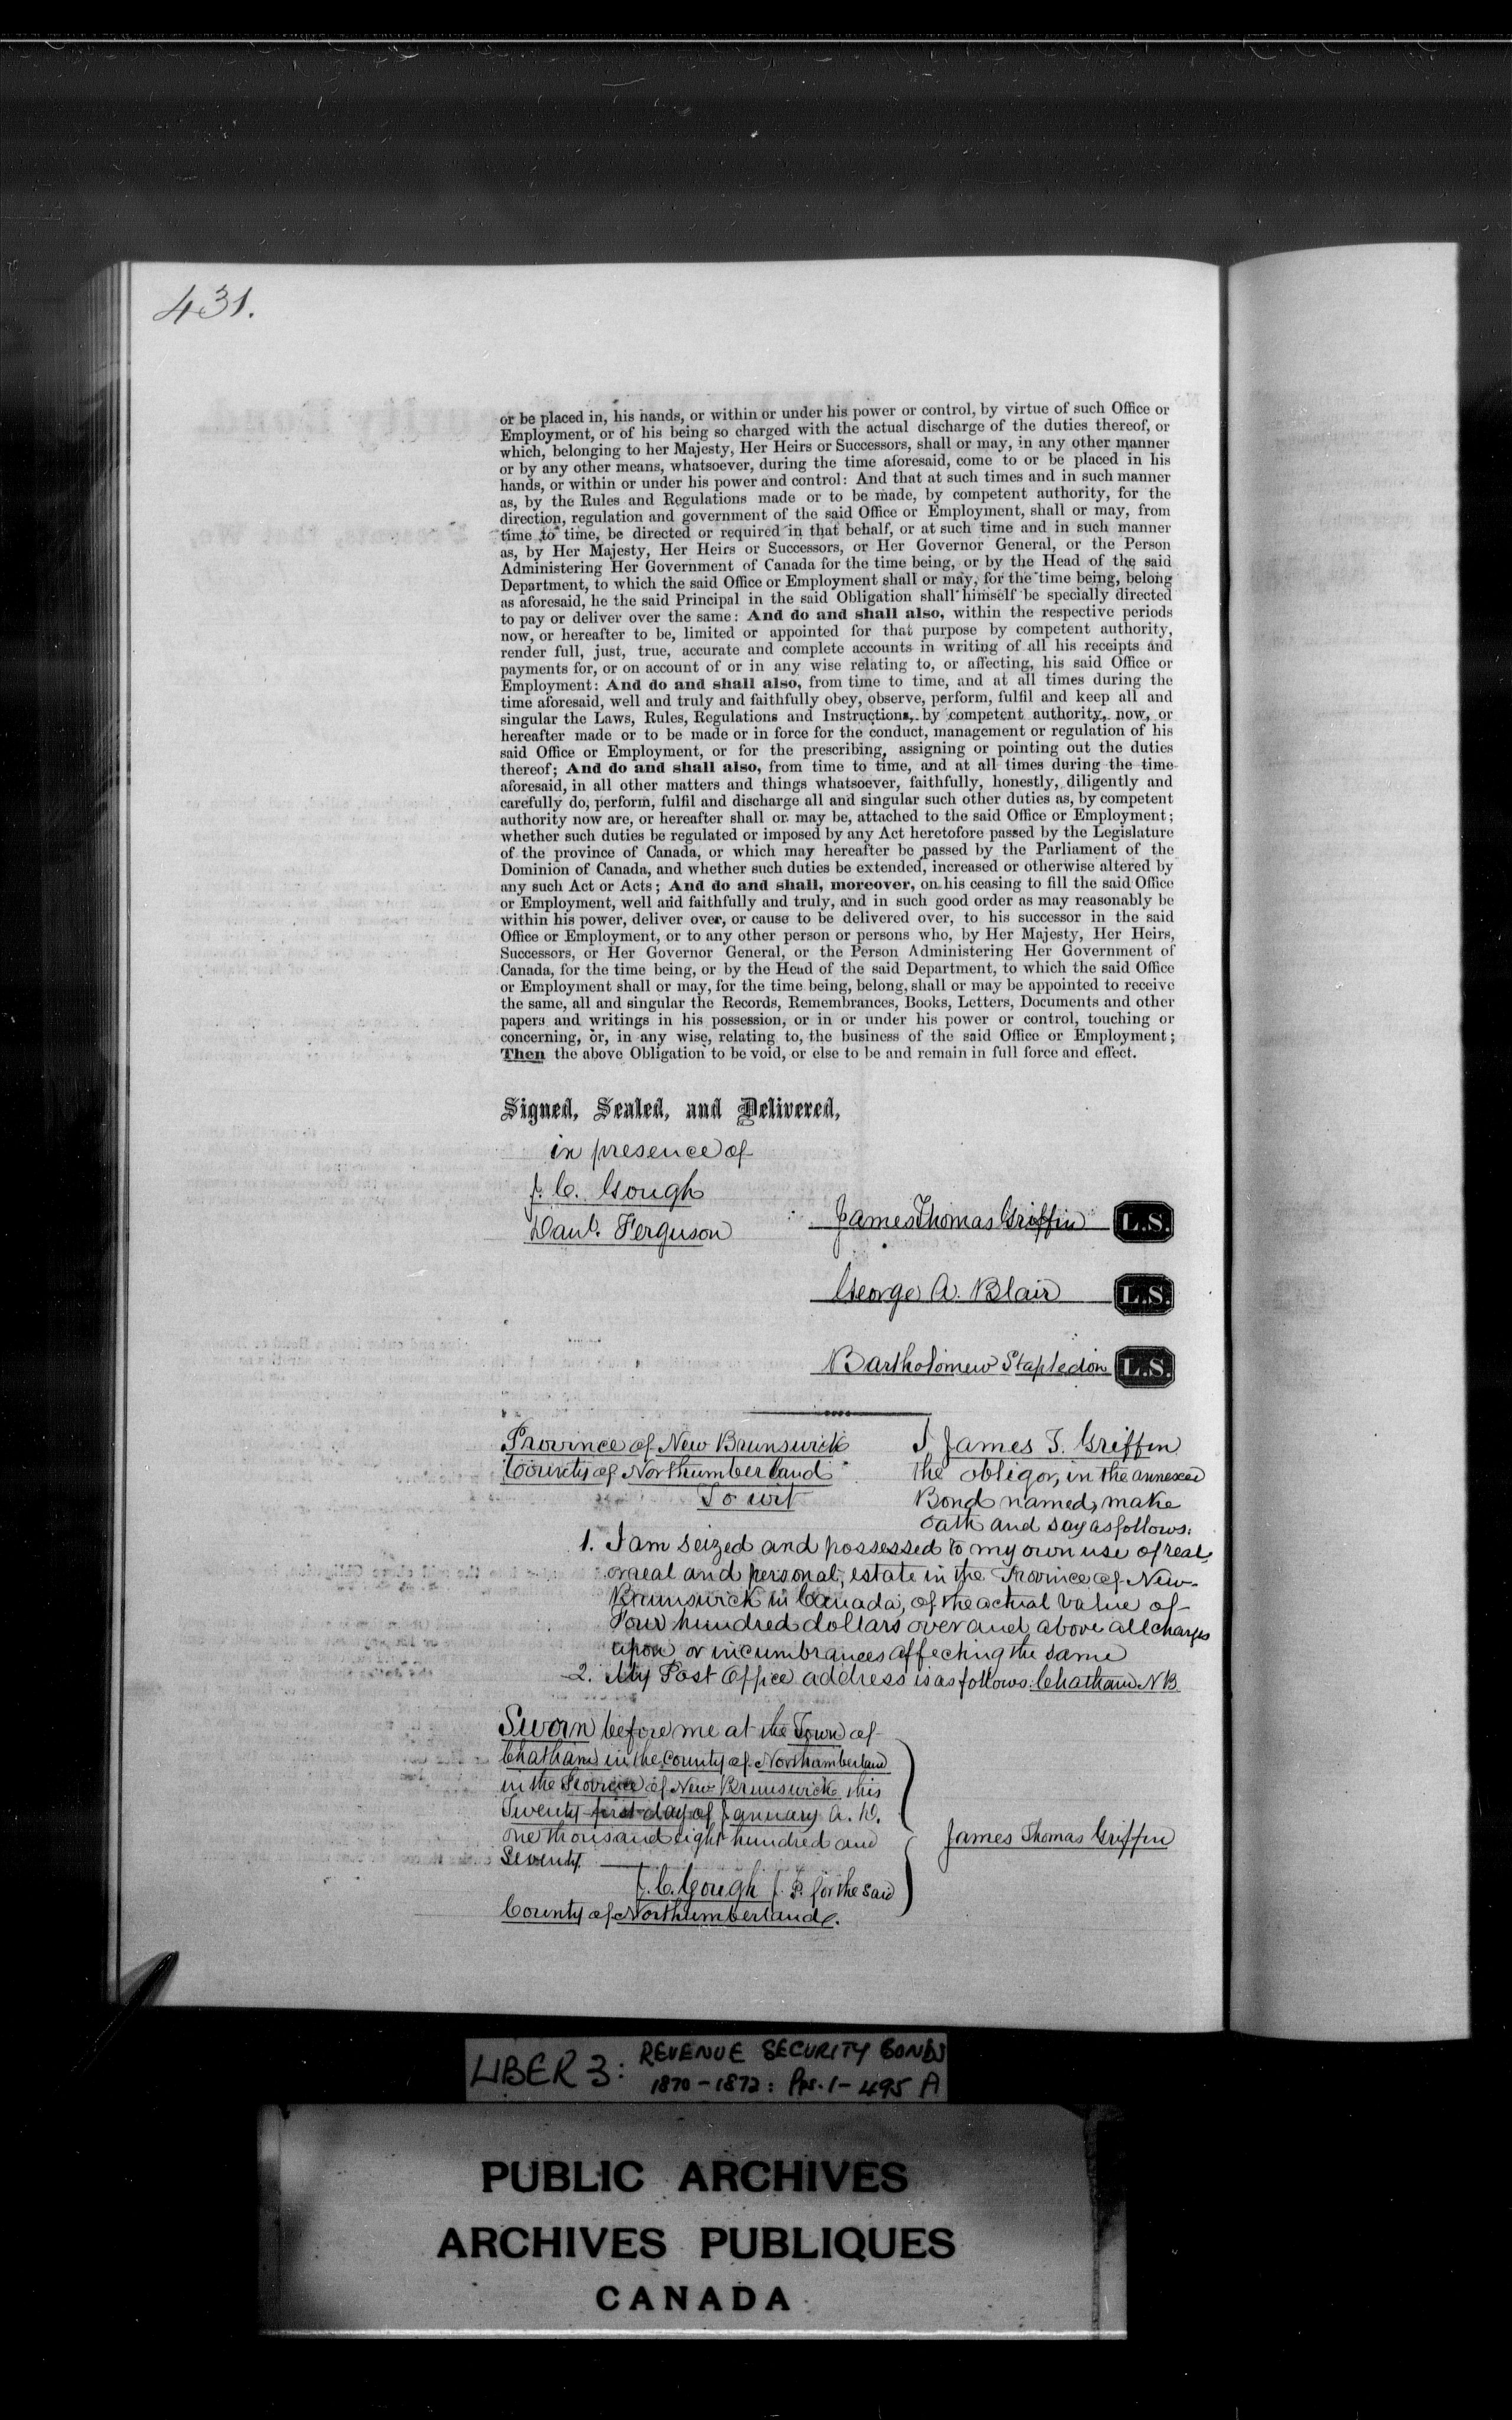 431.
or be placed in, his hands, or within or under his power or control, by virtue of such Office or
Employment, or of his being so charged with the actual discharge of the duties thereof, or
which, belonging to her Majesty, Her Heirs or Successors, shall or may, in any other manner
or by any other means, whatsoever, during the time aforesaid, come to or be placed in his
hands, or within or under his power and control: And that at such times and in such manner
as, by the Rules and Regulations made or to be made, by competent authority, for the
direction, regulation and government of the said Office or Employment, shall or may, from
time to time, be directed or required in that behalf, or at such time and in such manner
as, by Her Majesty, Her Heirs or Successors, or Her Governor General, or the Person
Administering Her Government of Canada for the time being, or by the Head of the said
Department, to which the said Office or Employment shall or may, for the time being, belong
as aforesaid, he the said Principal in the said Obligation shall himself be specially directed
to pay or deliver over the same: And do and shall also, within the respective periods
now, or hereafter to be, limited or appointed for that purpose by competent authority,
render full, just, true, accurate and complete accounts in writing of all his receipts and
payments for, or on account of or in any wise relating to, or affecting, his said Office or
Employment: And do and shall also, from time to time, and at all times during the
time aforesaid, well and truly and faithfully obey, observe, perform, fulfil and keep all and
singular the Laws, Rules, Regulations and Instructions, by competent authority, now, or
hereafter made or to be made or in force for the conduct, management or regulation of his
said Office or Employment, or for the prescribing, assigning or pointing out the duties
thereof; And do and shall also, from time to time, and at all times during the time
aforesaid, in all other matters and things whatsoever, faithfully, honestly, diligently and
carefully do, perform, fulfil and discharge all and singular such other duties as, by competent
authority now are, or hereafter shall or may be, attached to the said Office or Employment;
whether such duties be regulated or imposed by any Act heretofore passed by the Legislature
of the province of Canada, or which may hereafter be passed by the Parliament of the
Dominion of Canada, and whether such duties be extended, increased or otherwise altered by
any such Act or Acts; And do and shall, moreover, on his ceasing to fill the said Office
or Employment, well and faithfully and truly, and in such good order as may reasonably be
within his power, deliver over, or cause to be delivered over, to his successor in the said
Office or Employment, or to any other person or persons who, by Her Majesty, Her Heirs,
Successors, or Her Governor General, or the Person Administering Her Government of
Canada, for the time being, or by the Head of the said Department, to which the said Office
or Employment shall or may, for the time being, belong, shall or may be appointed to receive
the same, all and singular the Records, Remembrances, Books, Letters, Documents and other
papers and writings in his possession, or in or under his power or control, touching or
concerning, or, in any wise, relating to, the business of the said Office or Employment;
Then the above Obligation to be void, or else to be and remain in full force and effect.
Signed, Sealed, and Delivered,
in presence of
J. C. Gough
Danl. Ferguson
James Thomas Griffin L.S.
George A. Blair L.S.
Bartholomew Stapledon L.S.
Province of New Brunswick
County of Northumberland
To wit
I James T. Griffin
the obligor, in the annexed
Bond named, make
oath and say as follows.
1. I am seized and possessed to my own use of real,
or real and personal, estate in the Province of New-
Brunswick in Canada, of the actual value of
Four hundred dollars over and above all charges
upon or incumbrances affecting the same
2. My Post Office address is as follows: Chatham N B
Sworn before me at the Town of
Chatham in the County of Northumberland
in the Province of New Brunswick this
Twenty first day of January A. D.
one thousand eight hundred and
Seventy
J. C. Gough J. P. for the said
County of Northumberland.
James Thomas Griffin
LIBER 3: REVENUE SECURITY BONDS
1870-1872: Pps. 1-495 A
PUBLIC ARCHIVES
ARCHIVES PUBLIQUES
CANADA